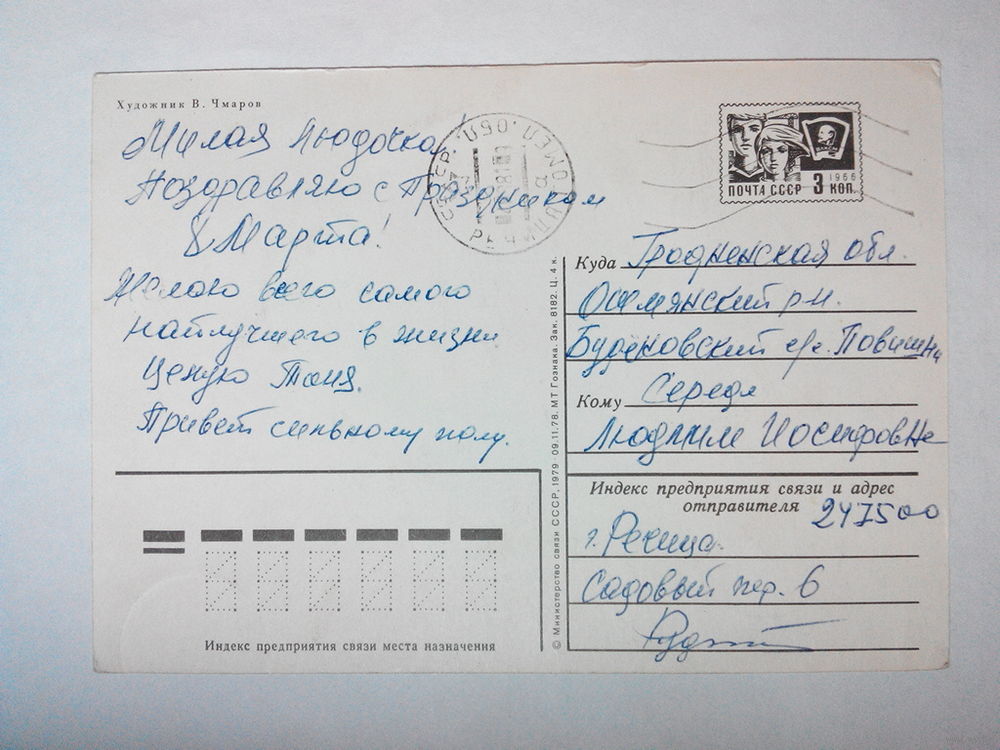 Художник В. Чмаров
Милая Людочка,
Поздравляю с Праздником
8 Марта!
Желаю всего самого
наилучшего в жизни
Целую Таня.
Привет сильному полу.
1966
ПОЧТА СССР 3 КОП.
Куда Гродненская обл.
Ошмянский р-н.
Будёновский с/с.
Кому Середе
Людмиле Иосифовне
Индекс предприятия связи и адрес
отправителя 247500
г. Речица
Садовый пер. 6
Индекс предприятия связи места назначения
© Министерство связи СССР, 1979 · 09.11.78. МТ Гознака. Зак. 8182. Ц. 4 к.